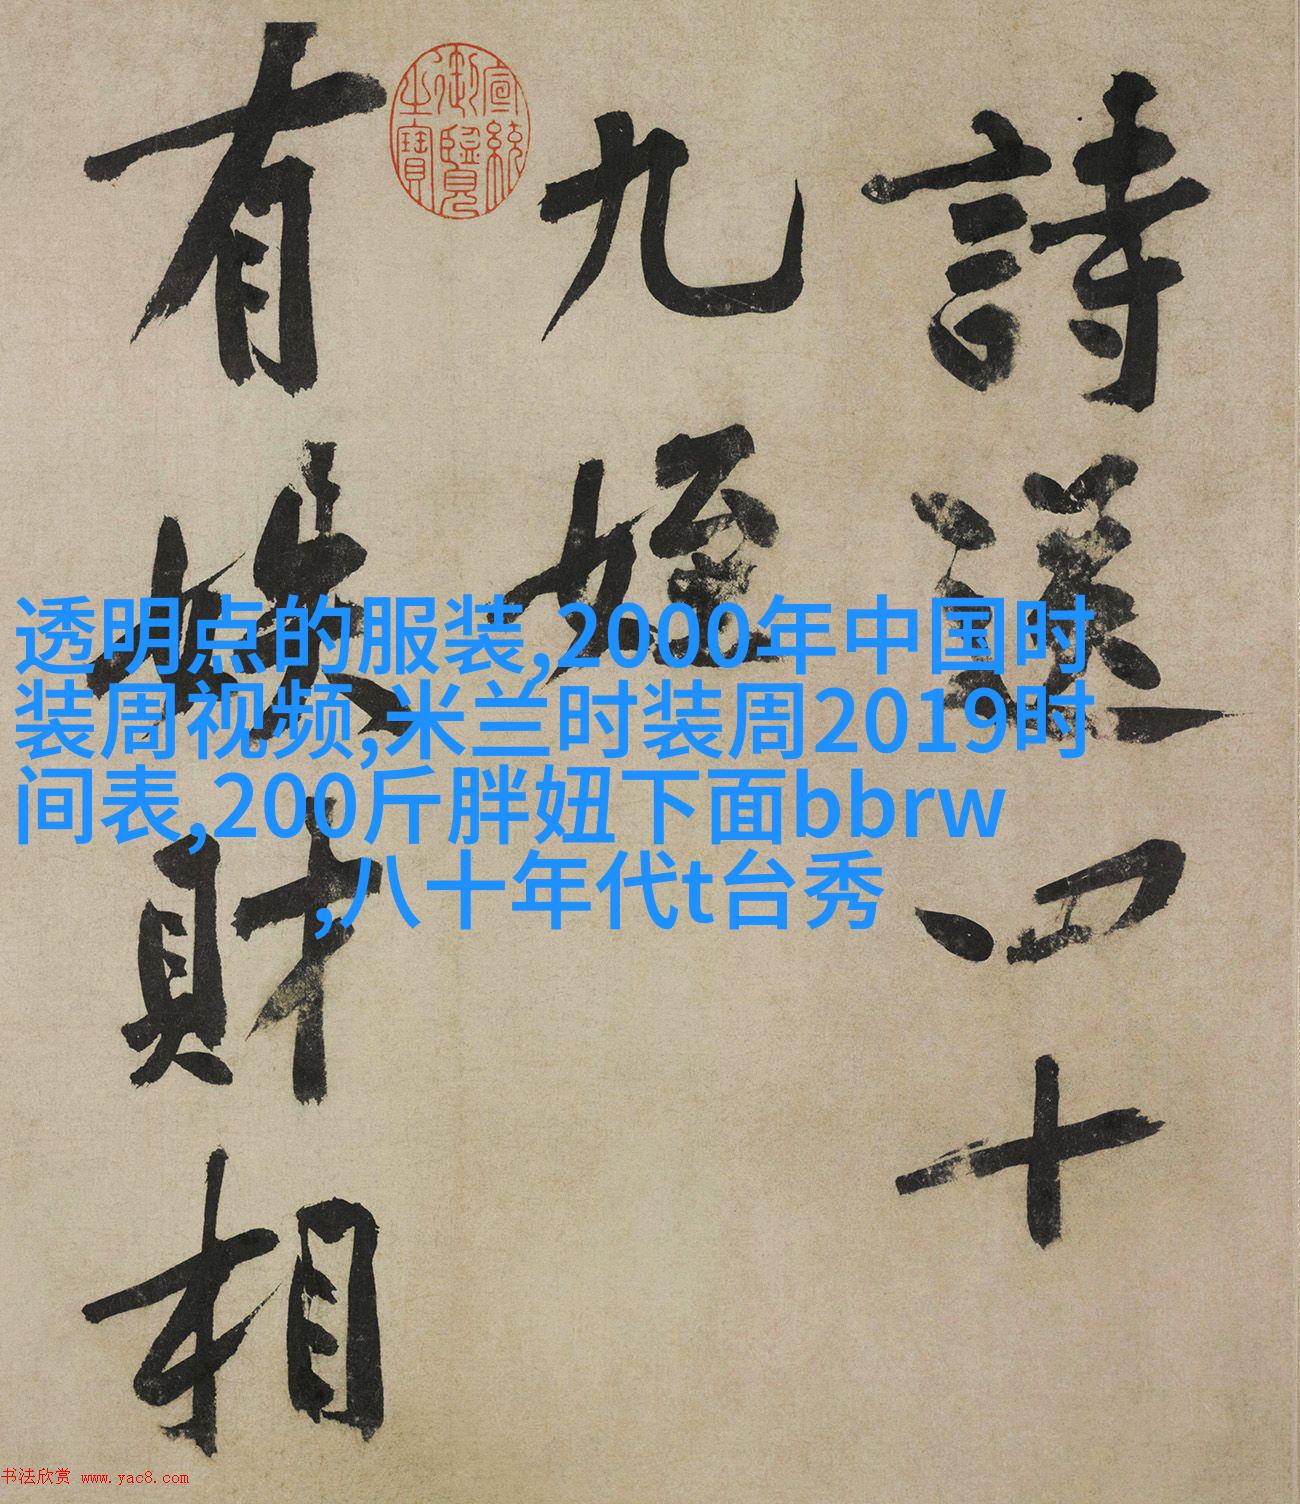 詩送四十
九姪
有財相
宣統御覽之寶
透明点的服装,2000年中国时
装周视频,米兰时装周2019时
间表,200斤胖妞下面bbrw
,八十年代t台秀
书法欣赏 www.yac8.com